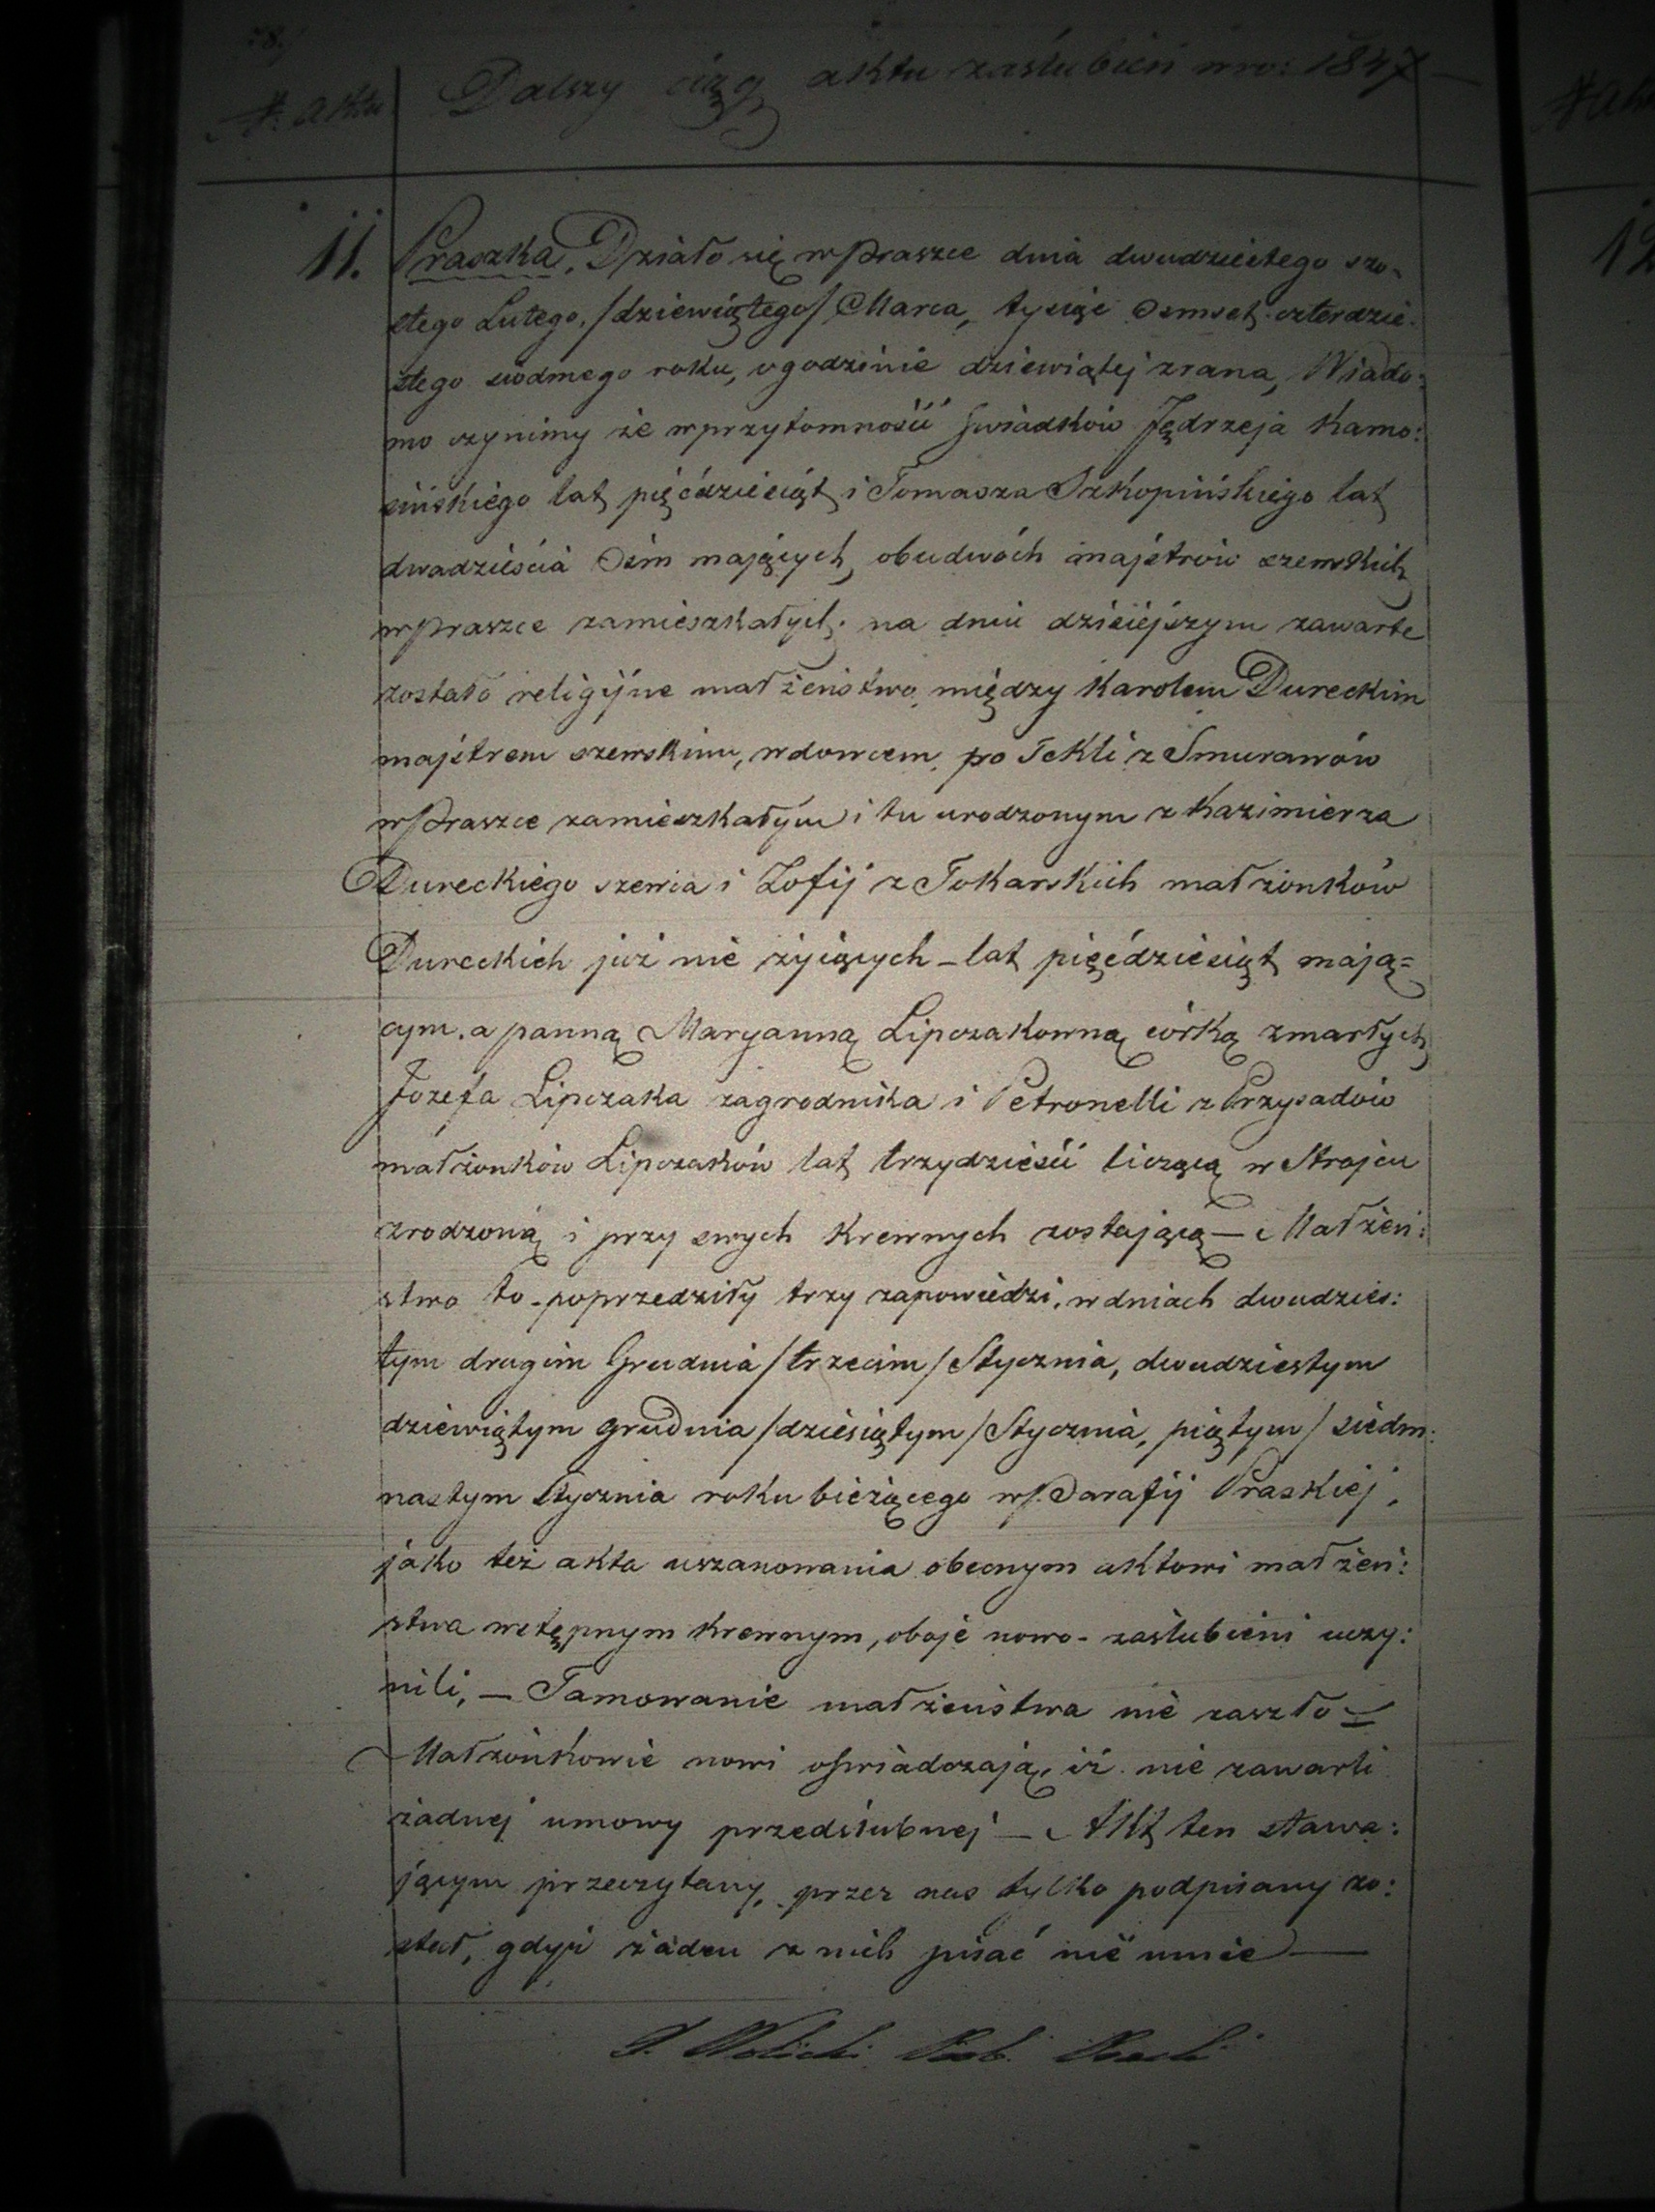 N: aktu
Dalszy ciąg aktu zaślubień 1847
11.
Praszka. Działo się w Praszce dnia dwudziestego szo-
stego Lutego, /dziewiątego/ Marca, tysiąc Osmset czterdzie:
stego siódmego roku, o godzinie dziewiątej zrana, Wiado:
mo czynimy że w przytomności Swiadków Jędrzeja Kamo:
sińskiego lat pięćdziesiąt i Tomasza Szkopińskiego lat
dwadzieścia Ośm mających, obudwóch majstrów szewskich
w Praszce zamieszkałych; na dniu dzisiéjszym zawarte
zostało religijne małżeństwo, między Karolem Dureckim
majstrem szewskim, wdowcem, po Tekli z Smurawów
w Praszce zamieszkałym i tu urodzonym z Kazimierza
Dureckiego szewca i Zofij z Tokarskich małżonków
Dureckich już nie żyiących – lat pięćdziesiąt mają=
cym. a panną Maryanną Lipczakowną córką zmarłych
Józefa Lipczaka zagrodnika i Petronelli z Przysadów
małżonków Lipczaków lat trzydzieści liczącą w Strojcu
zrodzoną i przy swych Krewnych zostającą — Małżeń:
stwo to – poprzedziły trzy zapowiedzi, w dniach dwudzies:
tym drugim Grudnia /trzecim/ Stycznia, dwudziestym
dziewiątym grudnia /dziesiątym/ Stycznia, piątym / siedm:
nastym Stycznia roku bieżącego w Parafij Praskiej,
jako też akta uszanowania obecnym aktowi małżeń:
stwa wstępnym krewnym, oboje nowo-zaślubieni uczy:
nili, — Tamowanie małżeństwa nie zaszło =
Małżonkowie nowi oświadczają, iż nie zawarli
żadnej umowy przedślubnej — Akt ten stawa:
jącym przeczytany, przez nas tylko podpisany zo:
stał, gdyż żaden z nich pisać nié umie —